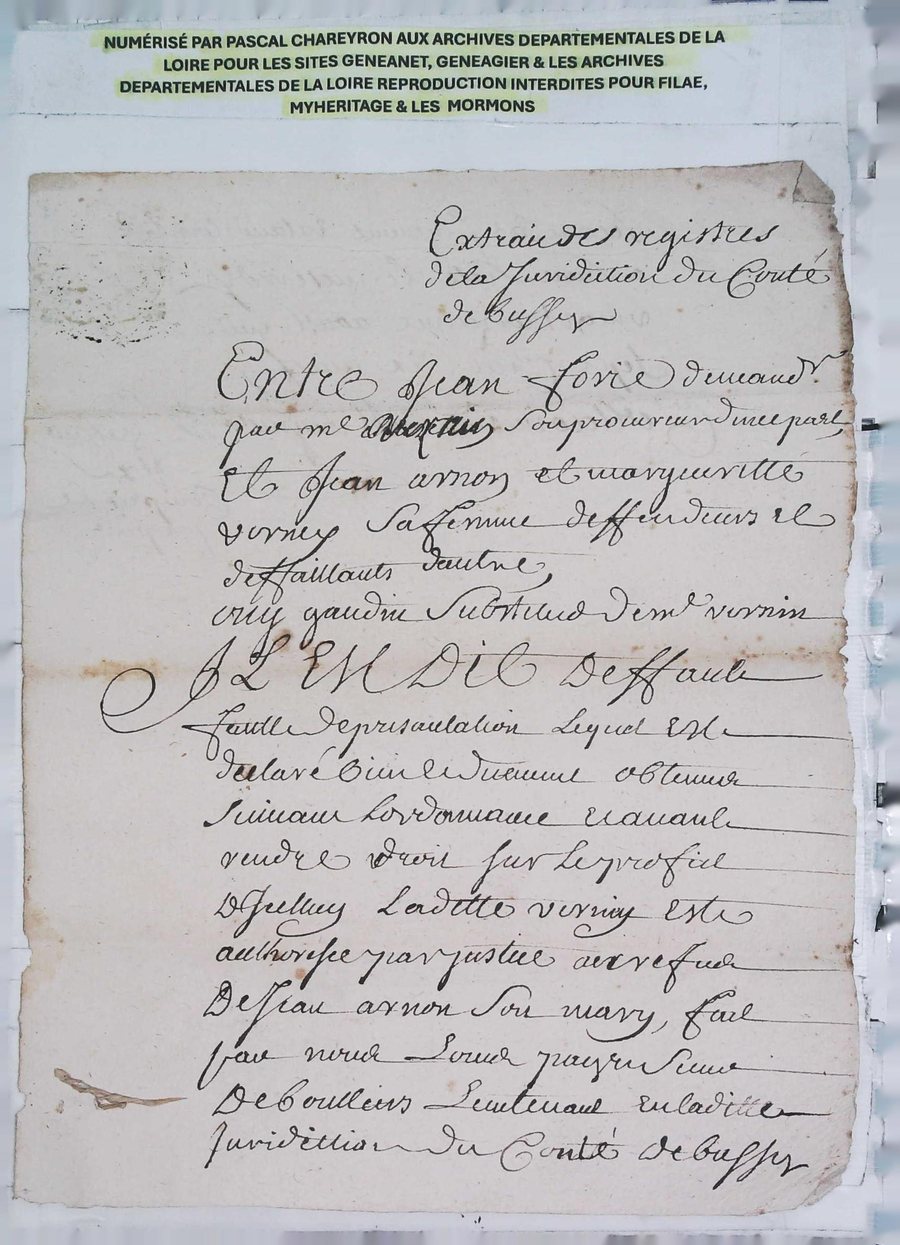 NUMÉRISÉ PAR PASCAL CHAREYRON AUX ARCHIVES DEPARTEMENTALES DE LA
LOIRE POUR LES SITES GENEANET, GENEAGIER & LES ARCHIVES
DEPARTEMENTALES DE LA LOIRE REPRODUCTION INTERDITES POUR FILAE,
MYHERITAGE & LES MORMONS
Extrait des registres
de la Juridiction du Conté
de bussy
Entre Jean forie demandr
par me son procureur d'une part
Et Jean arnon et margueritte
verney sa femme deffendeurs et
deffaillants dautre
ouy gaudin substitud de me vernin
IL EST DIT deffault
faulte de presantation lequel est
declaré bien et duement obtenue
suivant lordonnance et avant
rendre droit sur le profict
Dicelluy Laditte verney este
authorisee par justice au refus
De Jean arnon son mary, fait
par nous Louis payre sieur
De boulliers Lieutenant en laditte
Juridiction du Conté de bussy